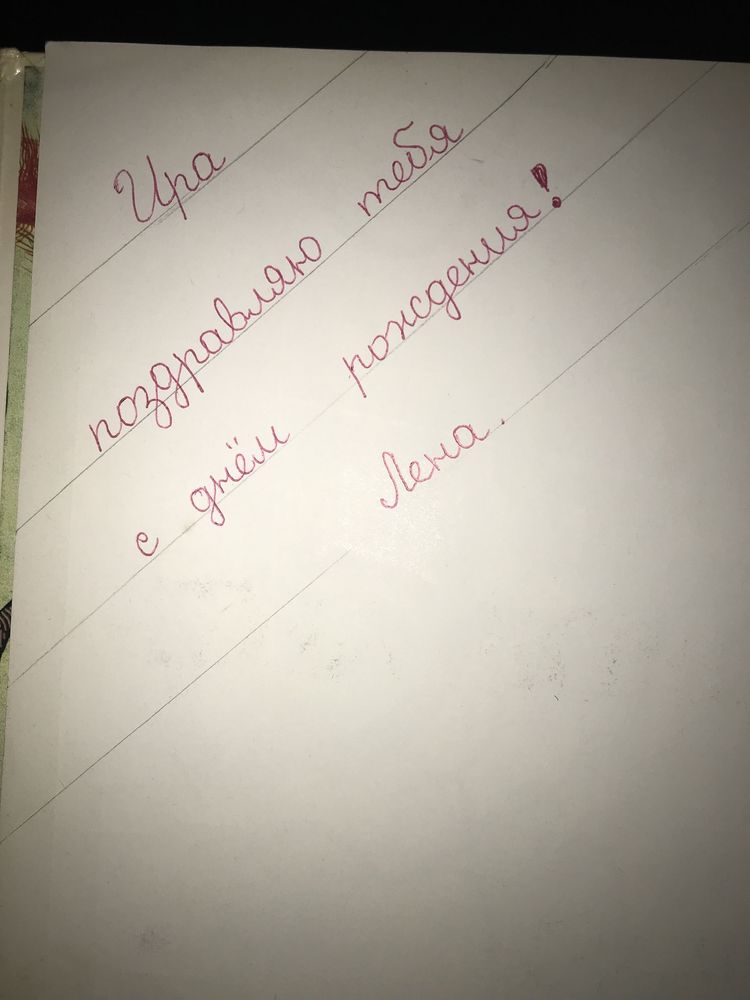 Ира
поздравляю тебя
с днём рождения!
Лена.